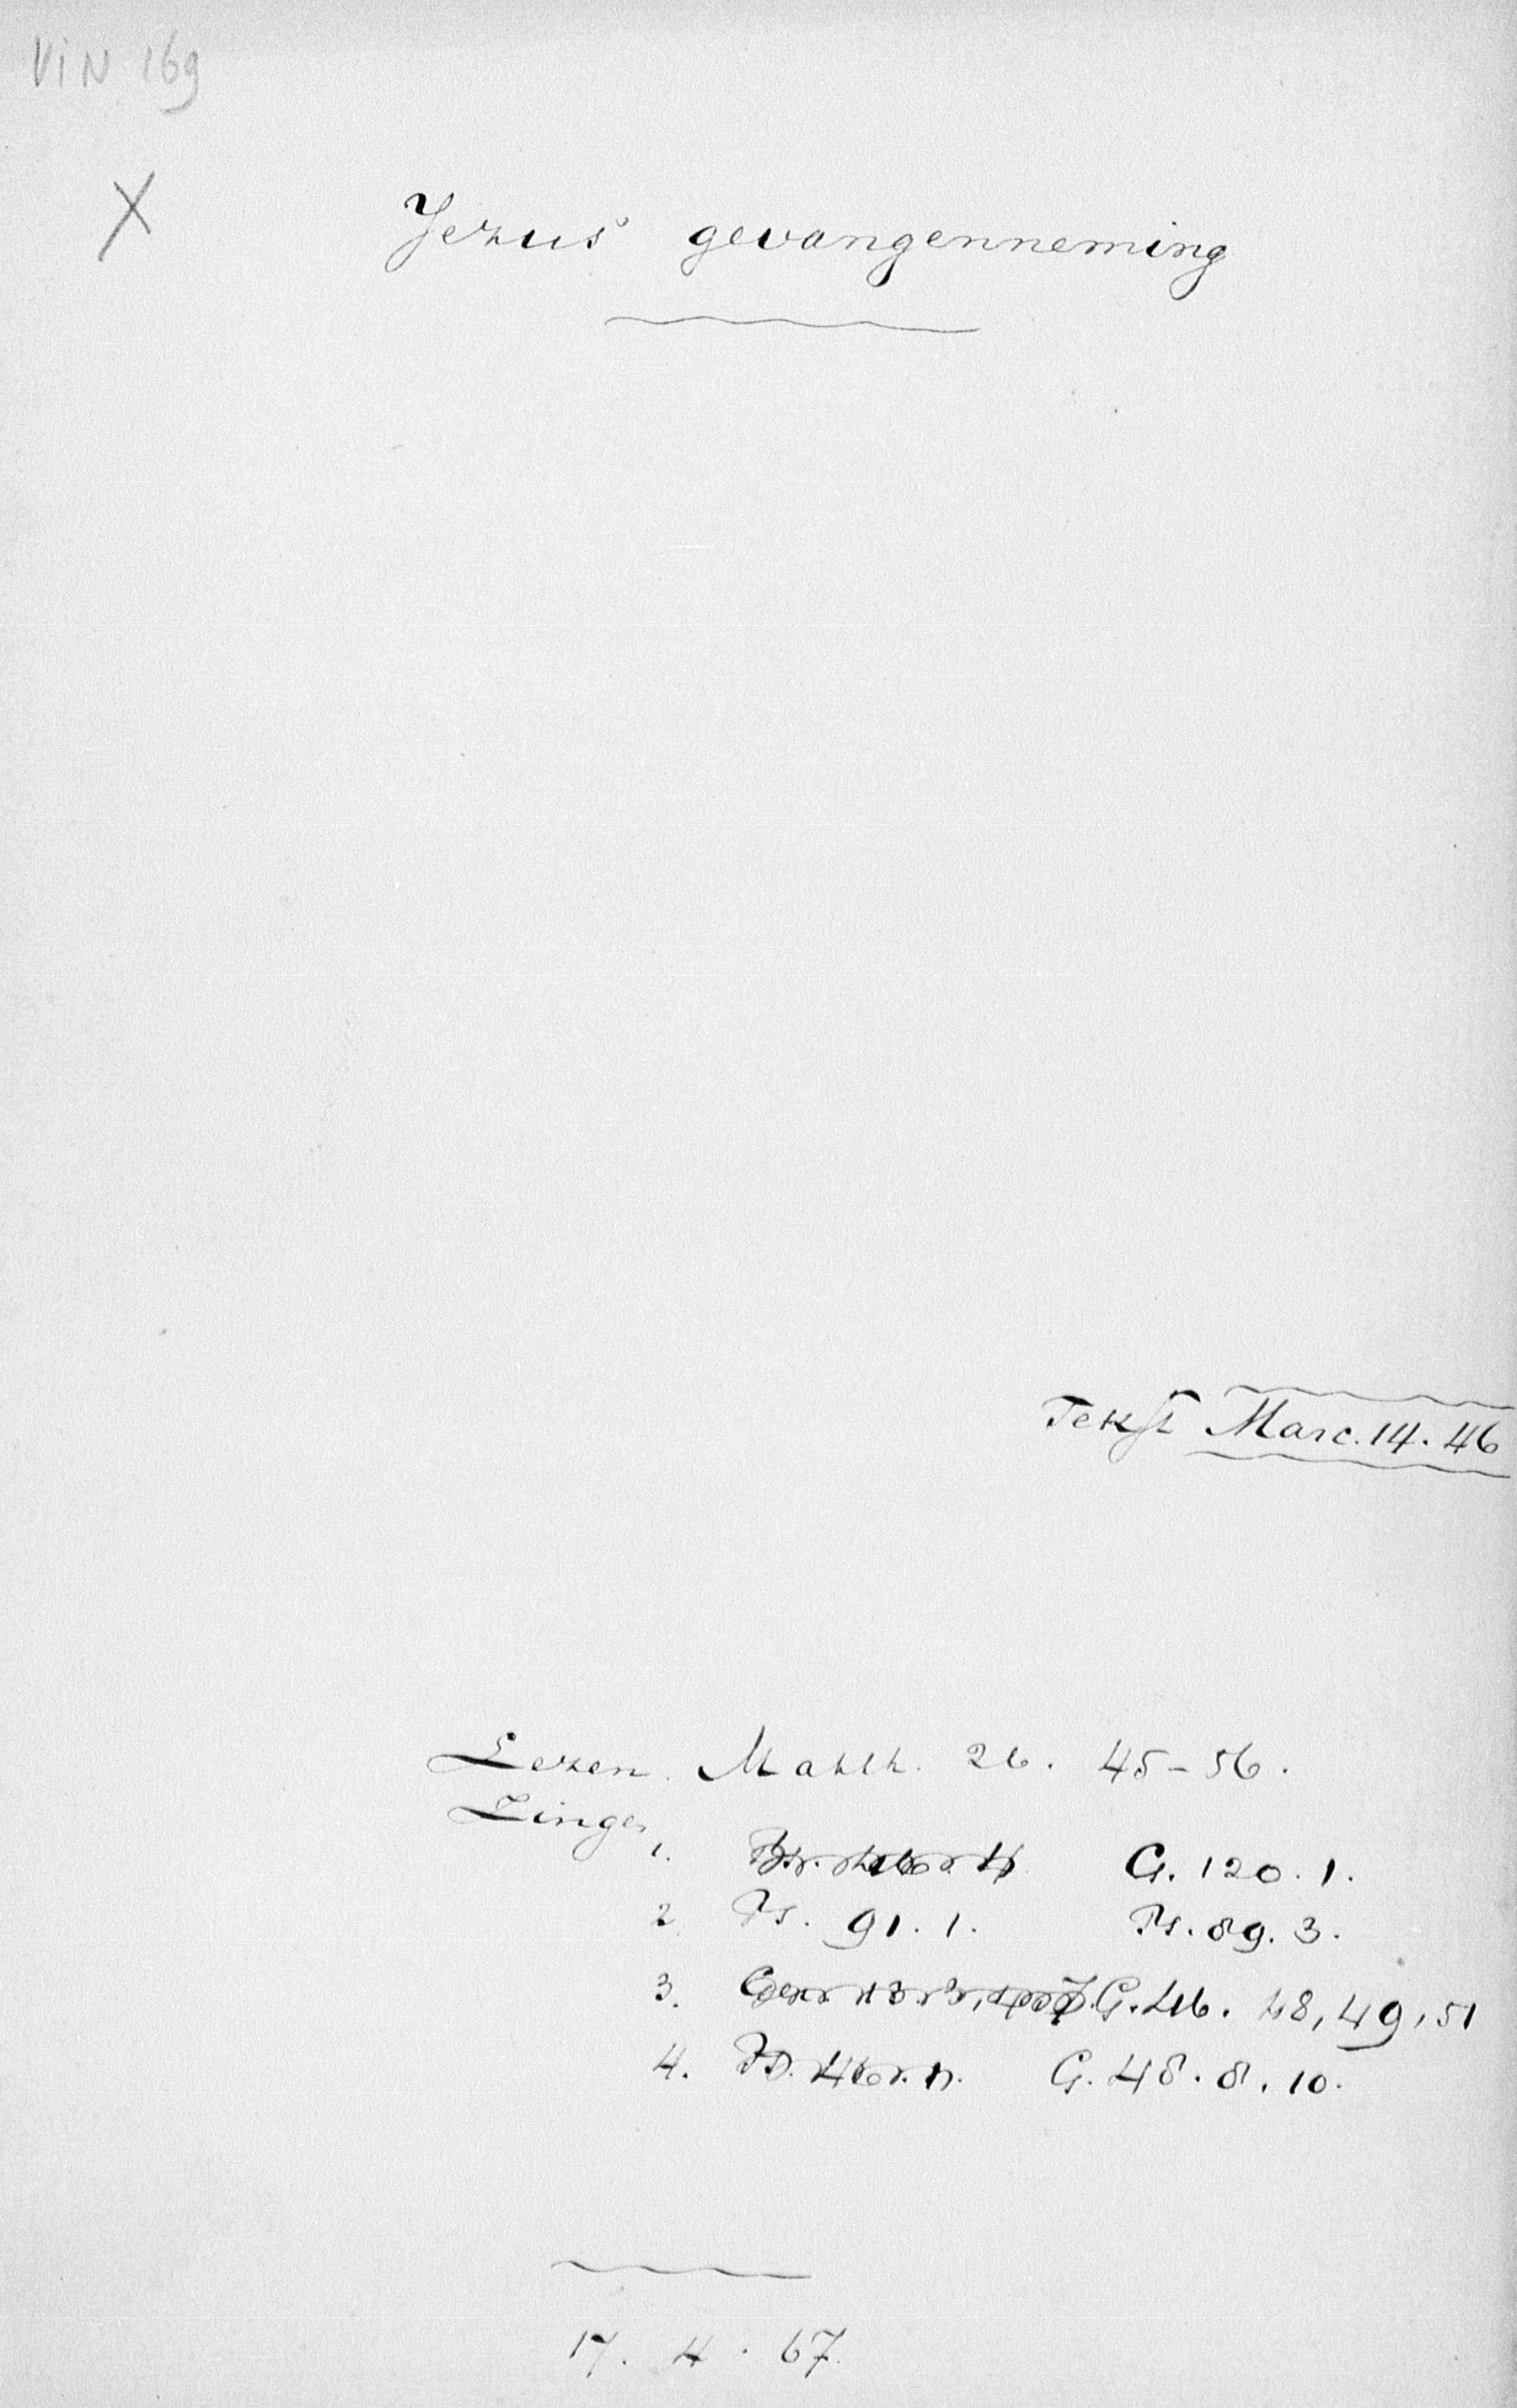 VIN 169
X
Jezus' gevangenneming
Tekst Marc. 14. 46
Lezen. Matth. 26. 45-56.
Zingen
1. G. 120. 1.
2. Ps. 91. 1. Ps. 89. 3.
3. G. 46. 48, 49, 51
4. G. 48. 8. 10.
17. 4. 67.